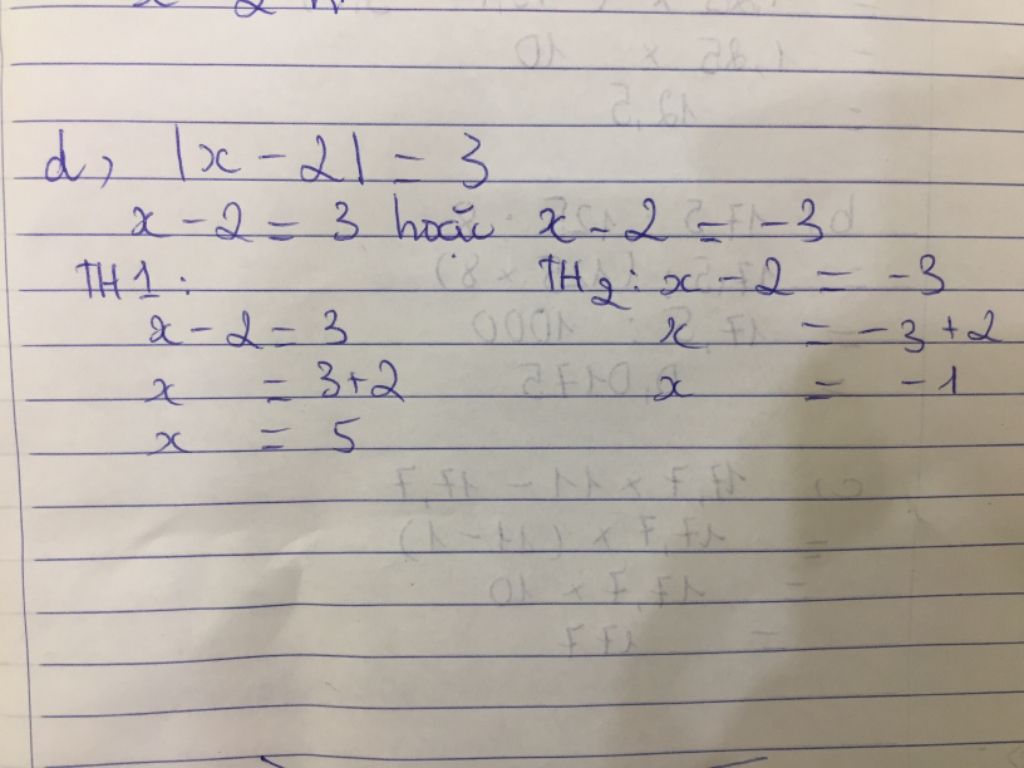 d, |x - 2| = 3
x - 2 = 3 hoặc x - 2 = -3
TH1: TH2: x - 2 = -3
x - 2 = 3 x = -3 + 2
x = 3+2 x = -1
x = 5